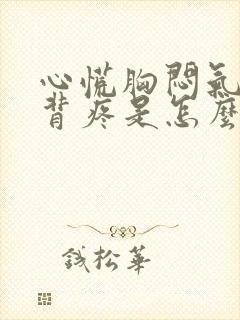 心慌胸悶氣
背疼是怎麼
錢松華